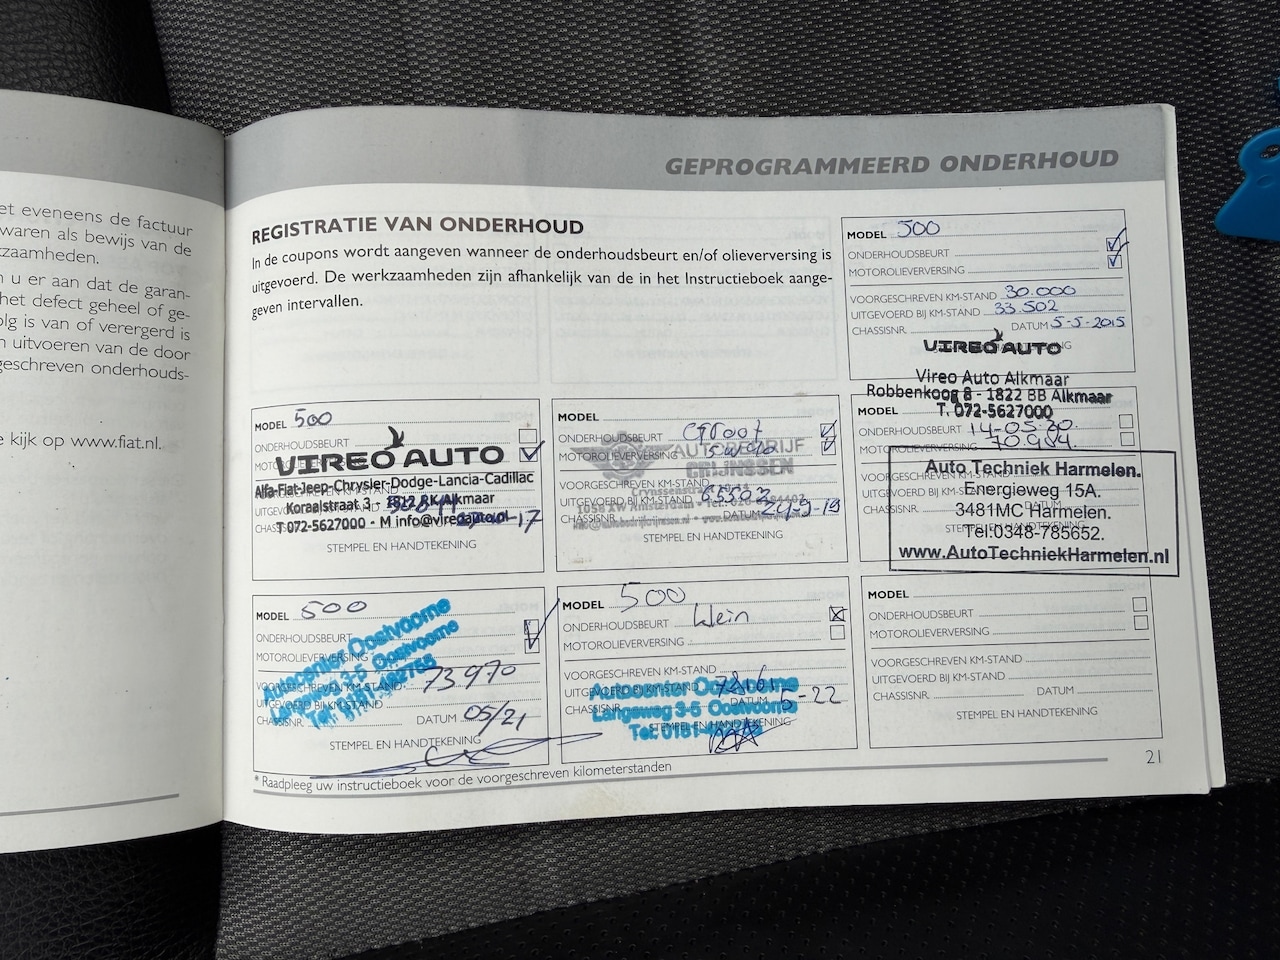 et eveneens de factuur
waren als bewijs van de
zaamheden.
n u er aan dat de garan-
het defect geheel of ge-
olg is van of verergerd is
n uitvoeren van de door
geschreven onderhouds-
e kijk op www.fiat.nl.
GEPROGRAMMEERD ONDERHOUD
REGISTRATIE VAN ONDERHOUD
In de coupons wordt aangeven wanneer de onderhoudsbeurt en/of olieverversing is
uitgevoerd. De werkzaamheden zijn afhankelijk van de in het Instructieboek aange-
geven intervallen.
MODEL 500
ONDERHOUDSBEURT
MOTOROLIEVERVERSING
VOORGESCHREVEN KM-STAND 30.000
UITGEVOERD BIJ KM-STAND 33.502
CHASSISNR. DATUM 5-5-2015
VIREO AUTO
Vireo Auto Alkmaar
Robbenkoog 8 - 1822 BB Alkmaar
T. 072-5627000
MODEL 500
ONDERHOUDSBEURT
VIREO AUTO
Alfa-Fiat-Jeep-Chrysler-Dodge-Lancia-Cadillac
Koraalstraat 3 - 1812 RK Alkmaar
T 072-5627000 - M info@vireoauto.nl
STEMPEL EN HANDTEKENING
MODEL
ONDERHOUDSBEURT Groot
MOTOROLIEVERVERSING
AUTOBEDRIJF
CRIJNSSEN
VOORGESCHREVEN KM-STAND
UITGEVOERD BIJ KM-STAND 65502
CHASSISNR. DATUM 24-9-19
STEMPEL EN HANDTEKENING
MODEL
ONDERHOUDSBEURT 14-05-20.
MOTOROLIEVERVERSING 70.984
Auto Techniek Harmelen.
Energieweg 15A.
3481MC Harmelen.
Tel:0348-785652.
www.AutoTechniekHarmelen.nl
MODEL 500
ONDERHOUDSBEURT
MOTOROLIEVERVERSING
Autocenter Oostvoorne
Langeweg 3-5 Oostvoorne
VOORGESCHREVEN KM-STAND 73970
UITGEVOERD BIJ KM-STAND
CHASSISNR. DATUM 05/21
STEMPEL EN HANDTEKENING
MODEL 500
ONDERHOUDSBEURT klein
MOTOROLIEVERVERSING
VOORGESCHREVEN KM-STAND
UITGEVOERD BIJ KM-STAND
CHASSISNR. DATUM 5-22
Autocenter Oostvoorne
Langeweg 3-5 Oostvoorne
STEMPEL EN HANDTEKENING
MODEL
ONDERHOUDSBEURT
MOTOROLIEVERVERSING
VOORGESCHREVEN KM-STAND
UITGEVOERD BIJ KM-STAND
CHASSISNR. DATUM
STEMPEL EN HANDTEKENING
* Raadpleeg uw instructieboek voor de voorgeschreven kilometerstanden
21